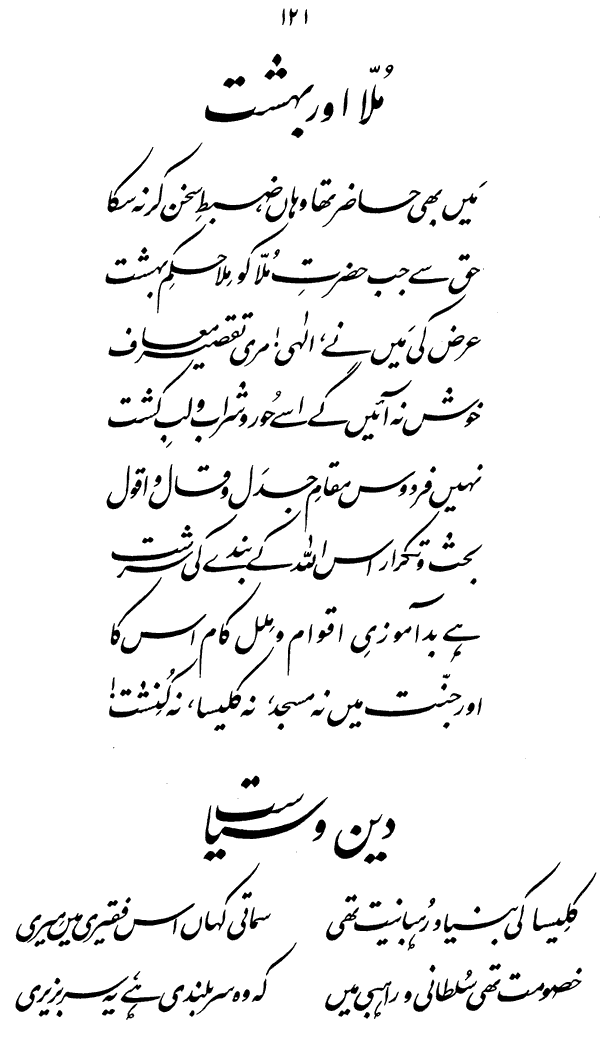 ۱۲۱
مُلّا اور بہشت
مَیں بھی حاضر تھا وہاں، ضبطِ سخن کر نہ سکا
حق سے جب حضرتِ مُلّا کو مِلا حکمِ بہشت
عرض کی مَیں نے، الٰہی! مری تقصیر معاف
خوش نہ آئیں گے اسے حُور و شراب و لبِ کشت
نہیں فردوس مقامِ جدَل و قال و اقول
بحث و تکرار اس اللہ کے بندے کی سرشت
ہے بدآموزیِ اقوام و مِلل کام اس کا
اور جنّت میں نہ مسجد، نہ کلیسا، نہ کُنِشت!
دین و سیاست
کلِیسا کی بنیاد رُہبانیت تھی سماتی کہاں اس فقیری میں مِیری
خصومت تھی سُلطانی و راہبی میں کہ وہ سربلندی ہے یہ سربزیری